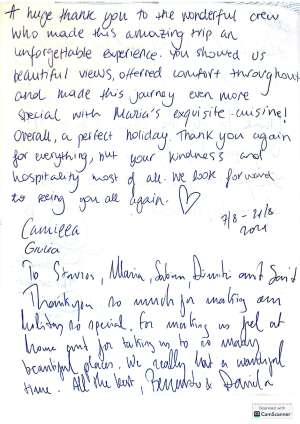 A huge thank you to the wonderful crew
who made this amazing trip an
unforgettable experience. You showed us
beautiful views, offered comfort throughout
and made this journey even more
special with Maria's exquisite cuisine!
Overall, a perfect holiday. Thank you again
for everything, but your kindness and
hospitality most of all. We look forward
to seeing you all again.
7/8 - 21/8
2021
Camilla
Giulia
To Stavros, Maria, Dimitri and
Thank you so much for making our
holiday so special. For making us feel at
home and for taking us to so many
beautiful places. We really had a wonderful
time. All the best, & Daniela
Scanned with
CamScanner